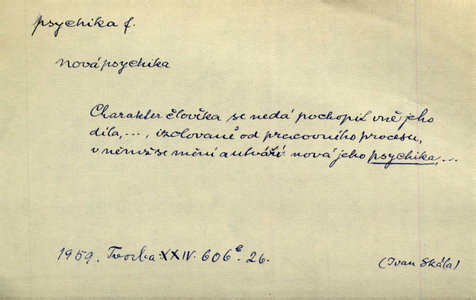 psychika f.
nová psychika
Charakter člověka se nedá pochopit vně jeho
díla, ..., izolovaně od pracovního procesu,
v němž se mění a utváří nová jeho psychika, ...
1959. Tvorba XXIV. 606 c. 26.
(Ivan Skála)